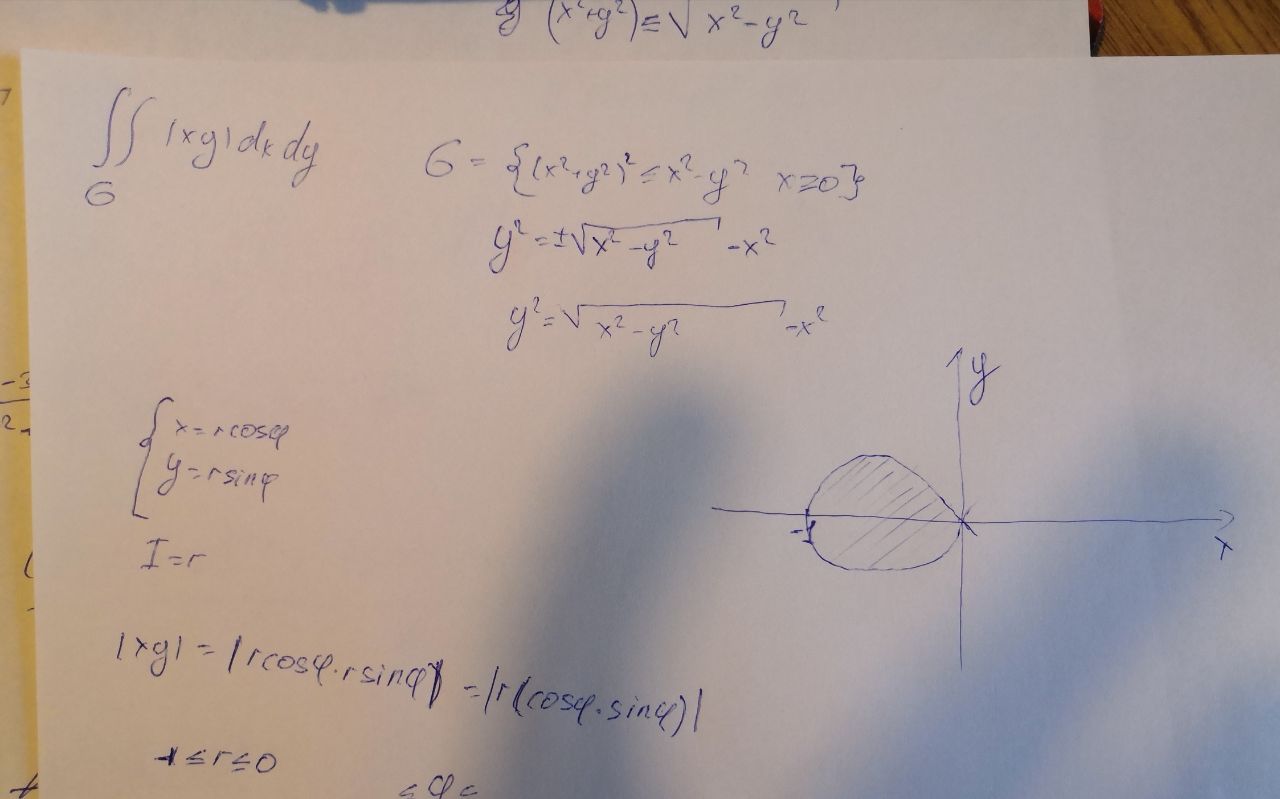 y (x²+y²)≤√x²-y²
∬ |xy|dxdy
G
G = {(x²+y²)²≤x²-y² x≥0}
y²=±√x²-y² -x²
y²=√x²-y² -x²
{x=rcosφ
y=rsinφ
I=r
y
-1
x
|xy| = |rcosφ·rsinφ| =|r(cosφ·sinφ)|
-1≤r≤0
≤φ≤